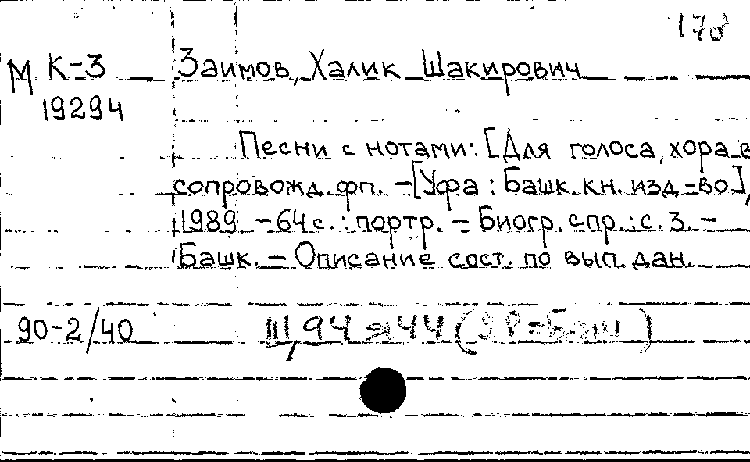 М К-3 Заимов, Халик Шакирович
19294
Песни с нотами: [Для голоса, хора в
сопровожд. фп. – [Уфа : Башк. кн. изд-во],
1989 – 64 с. : портр. – Биогр. спр.: с. 3. –
Башк. – Описание сост. по вып. дан.
90-2/40 Щ,94 я44